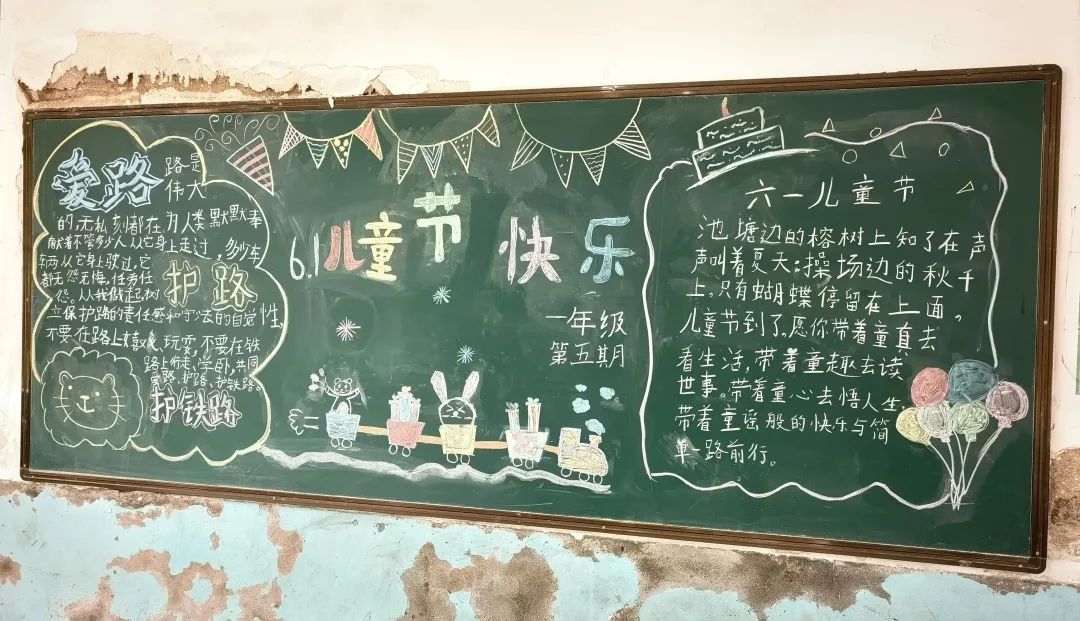 爱路 路是
伟大
的,无私刻都在为人类默默奉
献着不管多少人从它身上走过,多少车
辆从它身上驶过,它
都无怨无悔,任劳任
怨。从我做起,树 护路
立保护路的责任感和守法的自觉性,
不要在路上嬉戏、玩耍,不要在铁
路上行走、学卧,共同
爱路,护路,护铁路
护铁路
6.1儿童节 快乐
一年级
第五期
六一儿童节
池塘边的榕树上知了在声
声叫着夏天;操场边的秋千
上,只有蝴蝶停留在上面。
儿童节到了,愿你带着童真去
看生活,带着童趣去读
世事。带着童心去悟人生。
带着童谣般的快乐与简
单一路前行。